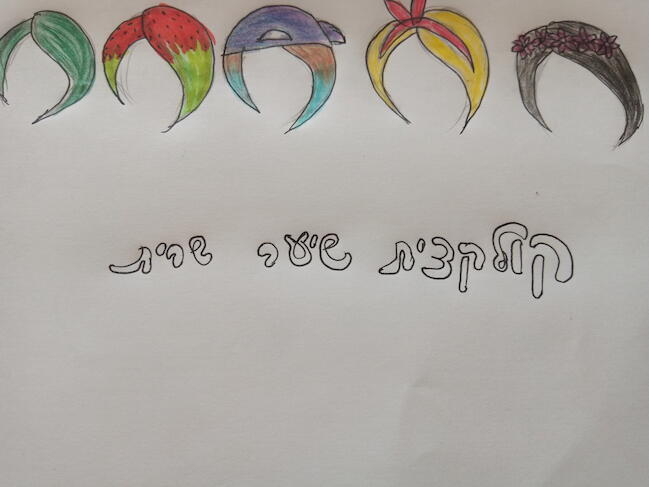 קולקצית שיער שרית